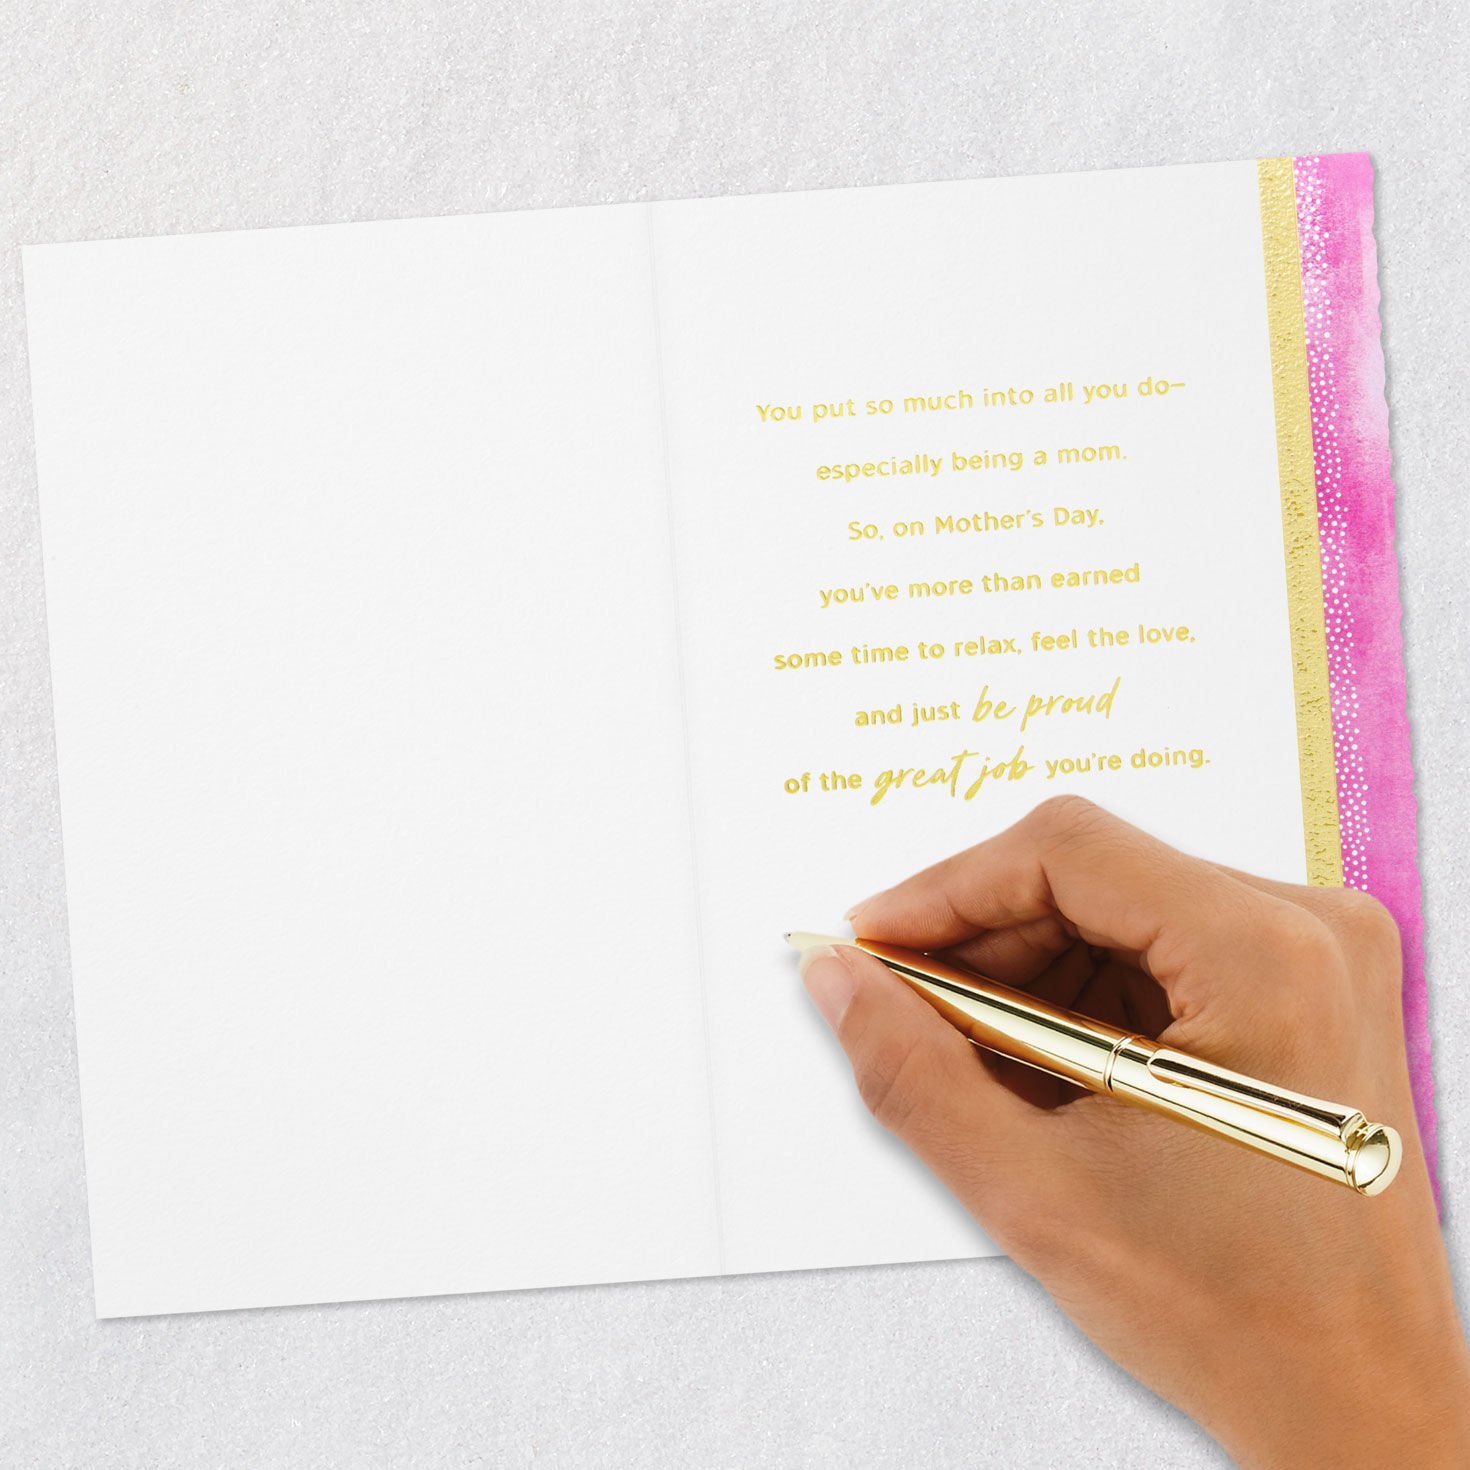 You put so much into all you do–
especially being a mom.
So, on Mother's Day,
you've more than earned
some time to relax, feel the love,
and just be proud
of the great job you're doing.